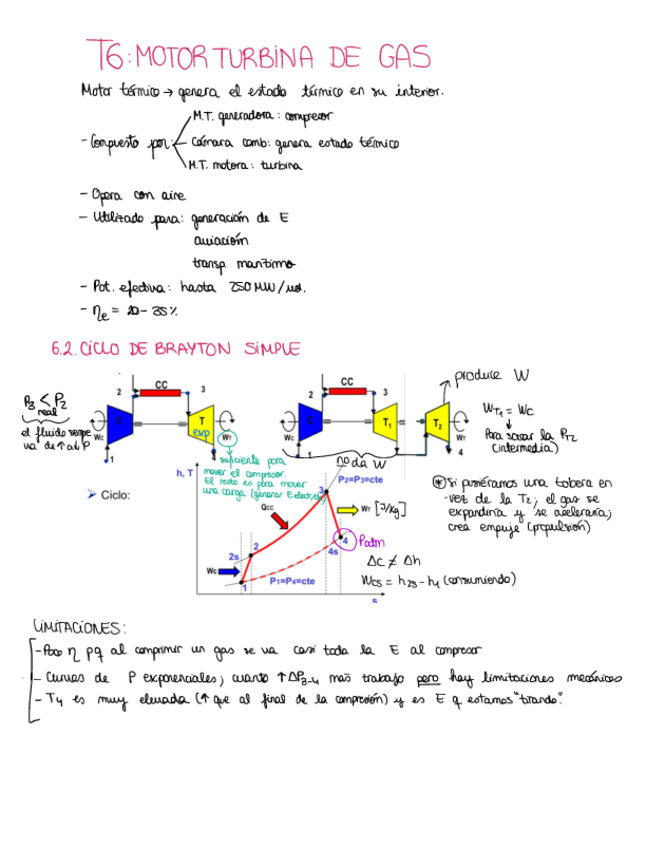 T6: MOTOR TURBINA DE GAS
Motor térmico → genera el estado térmico en su interior.
M.T. generadora: compresor
- Compuesto por: Cámara comb: genera estado térmico
M.T. motora: turbina
- Opera con aire
- Utilizado para: generación de E
aviación
transp marítimo
- Pot. efectiva: hasta 250 MW/ud.
- ηe = 20-35%
6.2. CICLO DE BRAYTON SIMPLE
produce W
P3 < P2
real
el fluido siempre
va de ↑ a ↓ P
2 CC 3
Wc T exp WT
1 4
suficiente para
mover el compresor.
El resto es para mover
una carga (generar E eléctrica)
2 CC 3
Wc T1 T2 WT
1 4
no da W
WT1 = Wc
↓
Para sacar la PT2
(intermedia)
➢ Ciclo:
h, T
P2=P3=cte
3
Qcc
WT [J/Kg]
2
2s
Wc
4 Patm
4s
P1=P4=cte
1
s
Δc ≠ Δh
Wcs = h2s - h1 (consumiendo)
* Si pusiéramos una tobera en
vez de la T2, el gas se
expandiría y se aceleraría;
crea empuje (propulsión)
LIMITACIONES:
- Poco η pq al comprimir un gas se va casi toda la E al compresor
- Curvas de P exponenciales; cuanto ↑ΔP3-4 mas trabajo pero hay limitaciones mecánicas
- T4 es muy elevada (↑ que al final de la compresión) y es E q estamos "tirando".